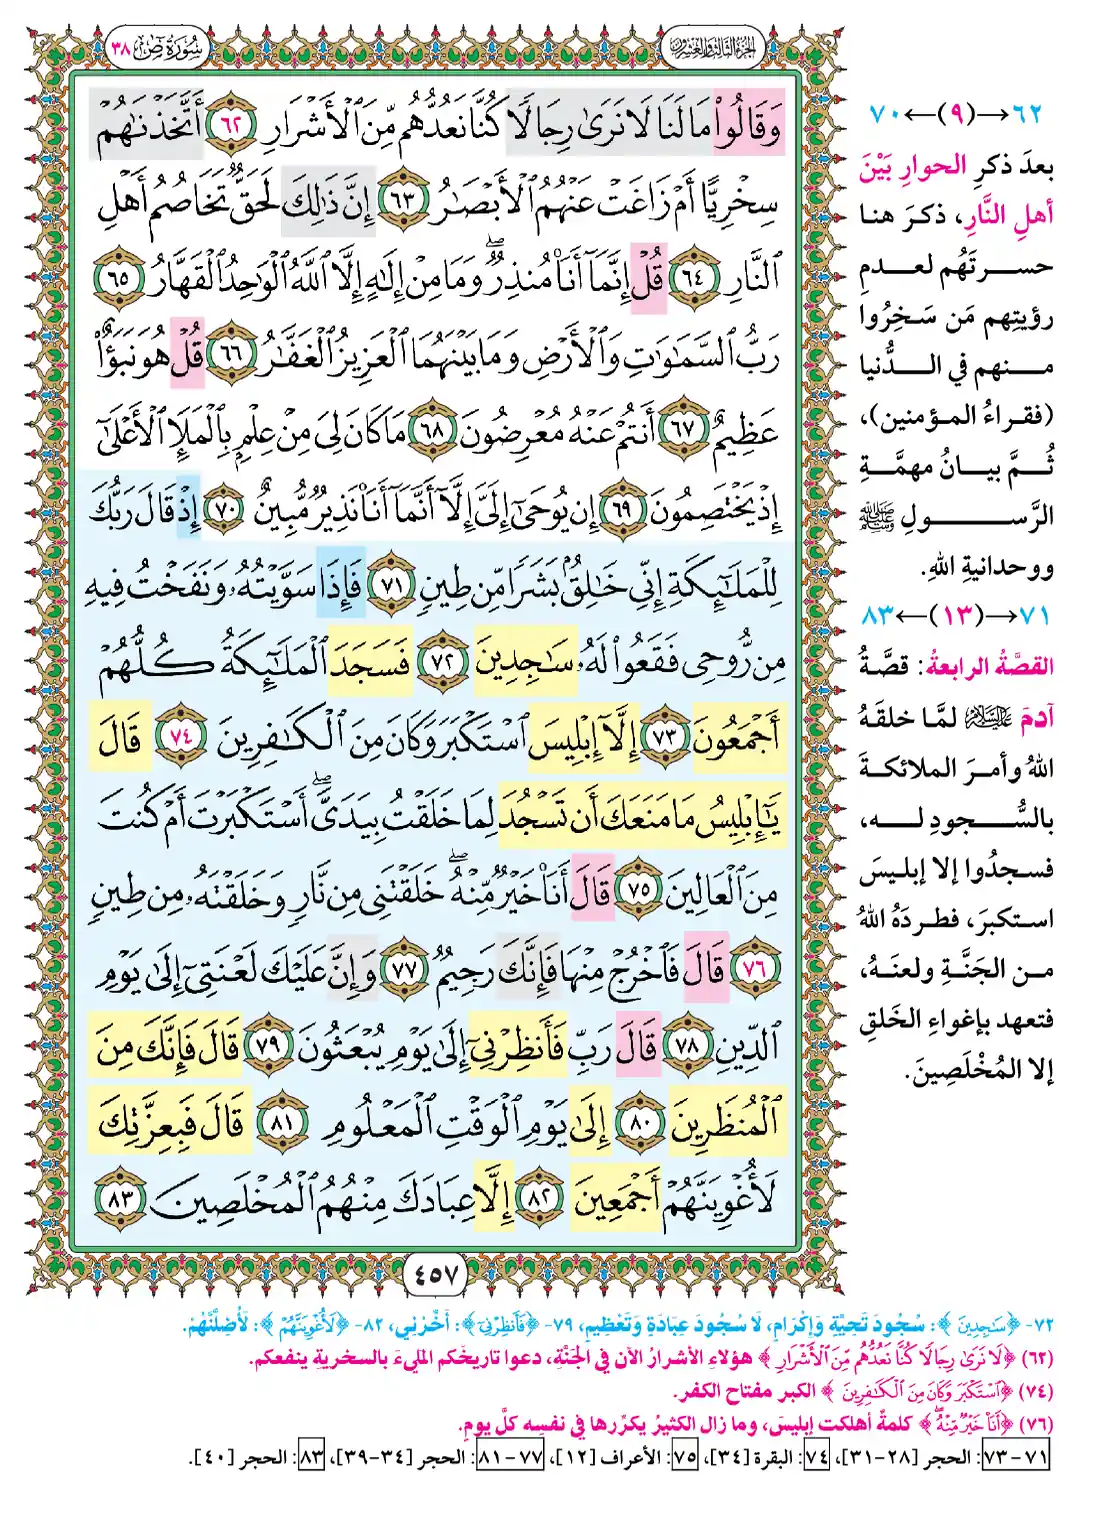 الجزء الثالث والعشرون
سورة ص ٣٨
وَقَالُوا۟ مَا لَنَا لَا نَرَىٰ رِجَالًا كُنَّا نَعُدُّهُم مِّنَ ٱلْأَشْرَارِ ٦٢ أَتَّخَذْنَـٰهُمْ
سِخْرِيًّا أَمْ زَاغَتْ عَنْهُمُ ٱلْأَبْصَـٰرُ ٦٣ إِنَّ ذَٰلِكَ لَحَقٌّ تَخَاصُمُ أَهْلِ
ٱلنَّارِ ٦٤ قُلْ إِنَّمَآ أَنَا۠ مُنذِرٌ ۖ وَمَا مِنْ إِلَـٰهٍ إِلَّا ٱللَّهُ ٱلْوَٰحِدُ ٱلْقَهَّارُ ٦٥
رَبُّ ٱلسَّمَـٰوَٰتِ وَٱلْأَرْضِ وَمَا بَيْنَهُمَا ٱلْعَزِيزُ ٱلْغَفَّـٰرُ ٦٦ قُلْ هُوَ نَبَؤٌا۟
عَظِيمٌ ٦٧ أَنتُمْ عَنْهُ مُعْرِضُونَ ٦٨ مَا كَانَ لِىَ مِنْ عِلْمٍۭ بِٱلْمَلَإِ ٱلْأَعْلَىٰٓ
إِذْ يَخْتَصِمُونَ ٦٩ إِن يُوحَىٰٓ إِلَىَّ إِلَّآ أَنَّمَآ أَنَا۠ نَذِيرٌ مُّبِينٌ ٧٠ إِذْ قَالَ رَبُّكَ
لِلْمَلَـٰٓئِكَةِ إِنِّى خَـٰلِقٌۢ بَشَرًا مِّن طِينٍ ٧١ فَإِذَا سَوَّيْتُهُۥ وَنَفَخْتُ فِيهِ
مِن رُّوحِى فَقَعُوا۟ لَهُۥ سَـٰجِدِينَ ٧٢ فَسَجَدَ ٱلْمَلَـٰٓئِكَةُ كُلُّهُمْ
أَجْمَعُونَ ٧٣ إِلَّآ إِبْلِيسَ ٱسْتَكْبَرَ وَكَانَ مِنَ ٱلْكَـٰفِرِينَ ٧٤ قَالَ
يَـٰٓإِبْلِيسُ مَا مَنَعَكَ أَن تَسْجُدَ لِمَا خَلَقْتُ بِيَدَىَّ ۖ أَسْتَكْبَرْتَ أَمْ كُنتَ
مِنَ ٱلْعَالِينَ ٧٥ قَالَ أَنَا۠ خَيْرٌ مِّنْهُ ۖ خَلَقْتَنِى مِن نَّارٍ وَخَلَقْتَهُۥ مِن طِينٍ
٧٦ قَالَ فَٱخْرُجْ مِنْهَا فَإِنَّكَ رَجِيمٌ ٧٧ وَإِنَّ عَلَيْكَ لَعْنَتِىٓ إِلَىٰ يَوْمِ
ٱلدِّينِ ٧٨ قَالَ رَبِّ فَأَنظِرْنِىٓ إِلَىٰ يَوْمِ يُبْعَثُونَ ٧٩ قَالَ فَإِنَّكَ مِنَ
ٱلْمُنظَرِينَ ٨٠ إِلَىٰ يَوْمِ ٱلْوَقْتِ ٱلْمَعْلُومِ ٨١ قَالَ فَبِعِزَّتِكَ
لَأُغْوِيَنَّهُمْ أَجْمَعِينَ ٨٢ إِلَّا عِبَادَكَ مِنْهُمُ ٱلْمُخْلَصِينَ ٨٣
٤٥٧
٦٢→(٩)←٧٠
بعدَ ذكرِ الحوارِ بَيْنَ
أهلِ النَّارِ، ذكرَ هنا
حسرتَهُم لعدمِ
رؤيتِهم مَن سَخِرُوا
منهم في الدُّنيا
(فقراءُ المؤمنين)،
ثُمَّ بيانُ مهمَّةِ
الرَّسولِ ﷺ
ووحدانيةِ اللهِ.
٧١→(١٣)←٨٣
القصَّةُ الرابعةُ: قصَّةُ
آدمَ عليه السلام لمَّا خلقَهُ
اللهُ وأمرَ الملائكةَ
بالسُّجودِ له،
فسجدُوا إلا إبليسَ
استكبرَ، فطردَهُ اللهُ
من الجَنَّةِ ولعنهُ،
فتعهد بإغواءِ الخَلقِ
إلا المُخْلَصِينَ.
٧٢- ﴿سَـٰجِدِينَ﴾: سُجُودَ تَحِيَّةٍ وَإِكْرَامٍ، لَا سُجُودَ عِبَادَةٍ وَتَعْظِيمٍ، ٧٩- ﴿فَأَنظِرْنِىٓ﴾: أَخِّرْنِي، ٨٢- ﴿لَأُغْوِيَنَّهُمْ﴾: لَأُضِلَّنَّهُمْ.
(٦٢) ﴿لَا نَرَىٰ رِجَالًا كُنَّا نَعُدُّهُم مِّنَ ٱلْأَشْرَارِ﴾ هؤلاءِ الأشرارُ الآن في الجَنَّةِ، دعوا تاريخَكم المليءَ بالسخريةِ ينفعكم.
(٧٤) ﴿ٱسْتَكْبَرَ وَكَانَ مِنَ ٱلْكَـٰفِرِينَ﴾ الكبر مفتاح الكفر.
(٧٦) ﴿أَنَا۠ خَيْرٌ مِّنْهُ﴾ كلمةٌ أهلكت إبليسَ، وما زال الكثيرُ يكرِّرها في نفسِه كلَّ يومٍ.
٧١-٧٣: الحجر [٢٨-٣١]، ٧٤: البقرة [٣٤]، ٧٥: الأعراف [١٢]، ٧٧-٨١: الحجر [٣٤-٣٩]، ٨٣: الحجر [٤٠].